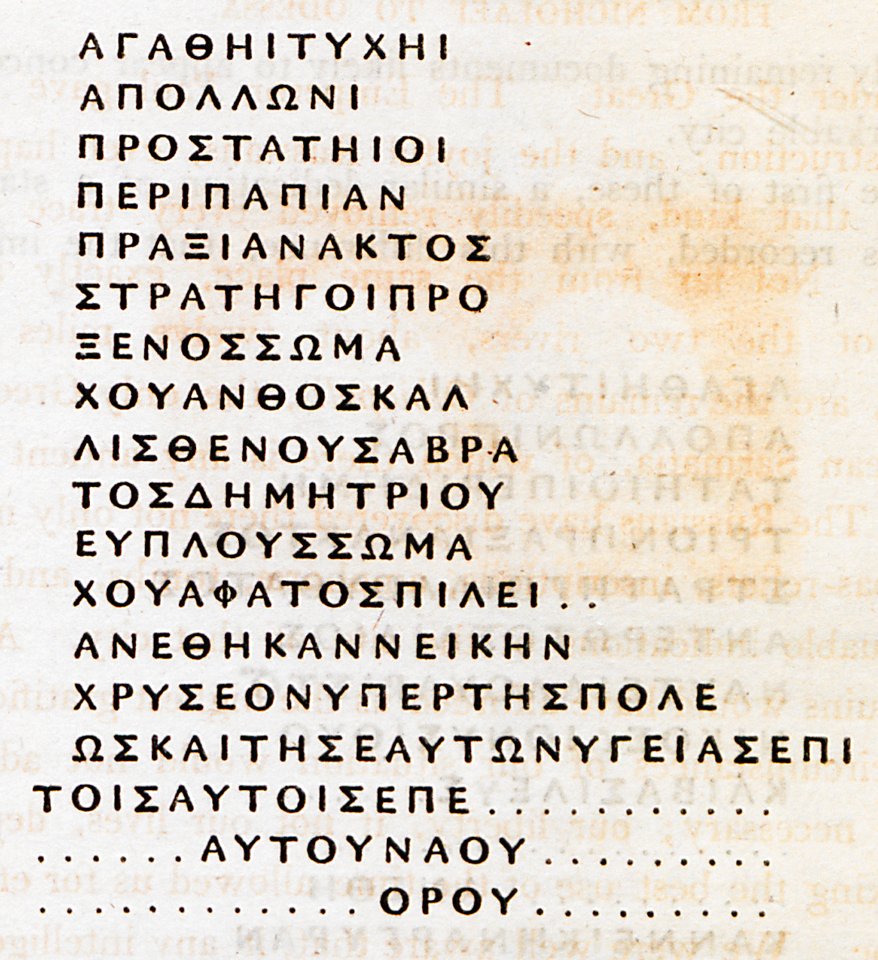 ΑΓΑΘΗΙΤΥΧΗΙ
ΑΠΟΛΛΩΝΙ
ΠΡΟΣΤΑΤΗΙΟΙ
ΠΕΡΙΠΑΠΙΑΝ
ΠΡΑΞΙΑΝΑΚΤΟΣ
ΣΤΡΑΤΗΓΟΙΠΡΟ
ΞΕΝΟΣΣΩΜΑ
ΧΟΥΑΝΘΟΣΚΑΛ
ΛΙΣΘΕΝΟΥΣΑΒΡΑ
ΤΟΣΔΗΜΗΤΡΙΟΥ
ΕΥΠΛΟΥΣΣΩΜΑ
ΧΟΥΑΦΑΤΟΣΠΙΛΕΙ..
ΑΝΕΘΗΚΑΝΝΕΙΚΗΝ
ΧΡΥΣΕΟΝΥΠΕΡΤΗΣΠΟΛΕ
ΩΣΚΑΙΤΗΣΕΑΥΤΩΝΥΓΕΙΑΣΕΠΙ
ΤΟΙΣΑΥΤΟΙΣΕΠΕ............
......ΑΥΤΟΥΝΑΟΥ.........
.............ΟΡΟΥ.........